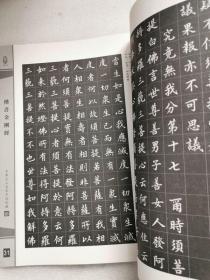 議果報亦不可思
議
究竟無我分第十七 爾時須菩
提白佛言世尊善男子善女人
發阿耨多羅三藐三菩提心云何應住云
生如是心我應滅度一
眾生實滅
度者何以故須菩提若菩薩有我相
人相眾生相壽者相即非菩薩所以
者何須菩提實無有法發阿耨多羅
三藐三菩提心者須菩提於意云何
如來於然燈佛所有法得阿耨多羅
三藐三菩提不不也世尊如我解佛
楷書金剛經
51